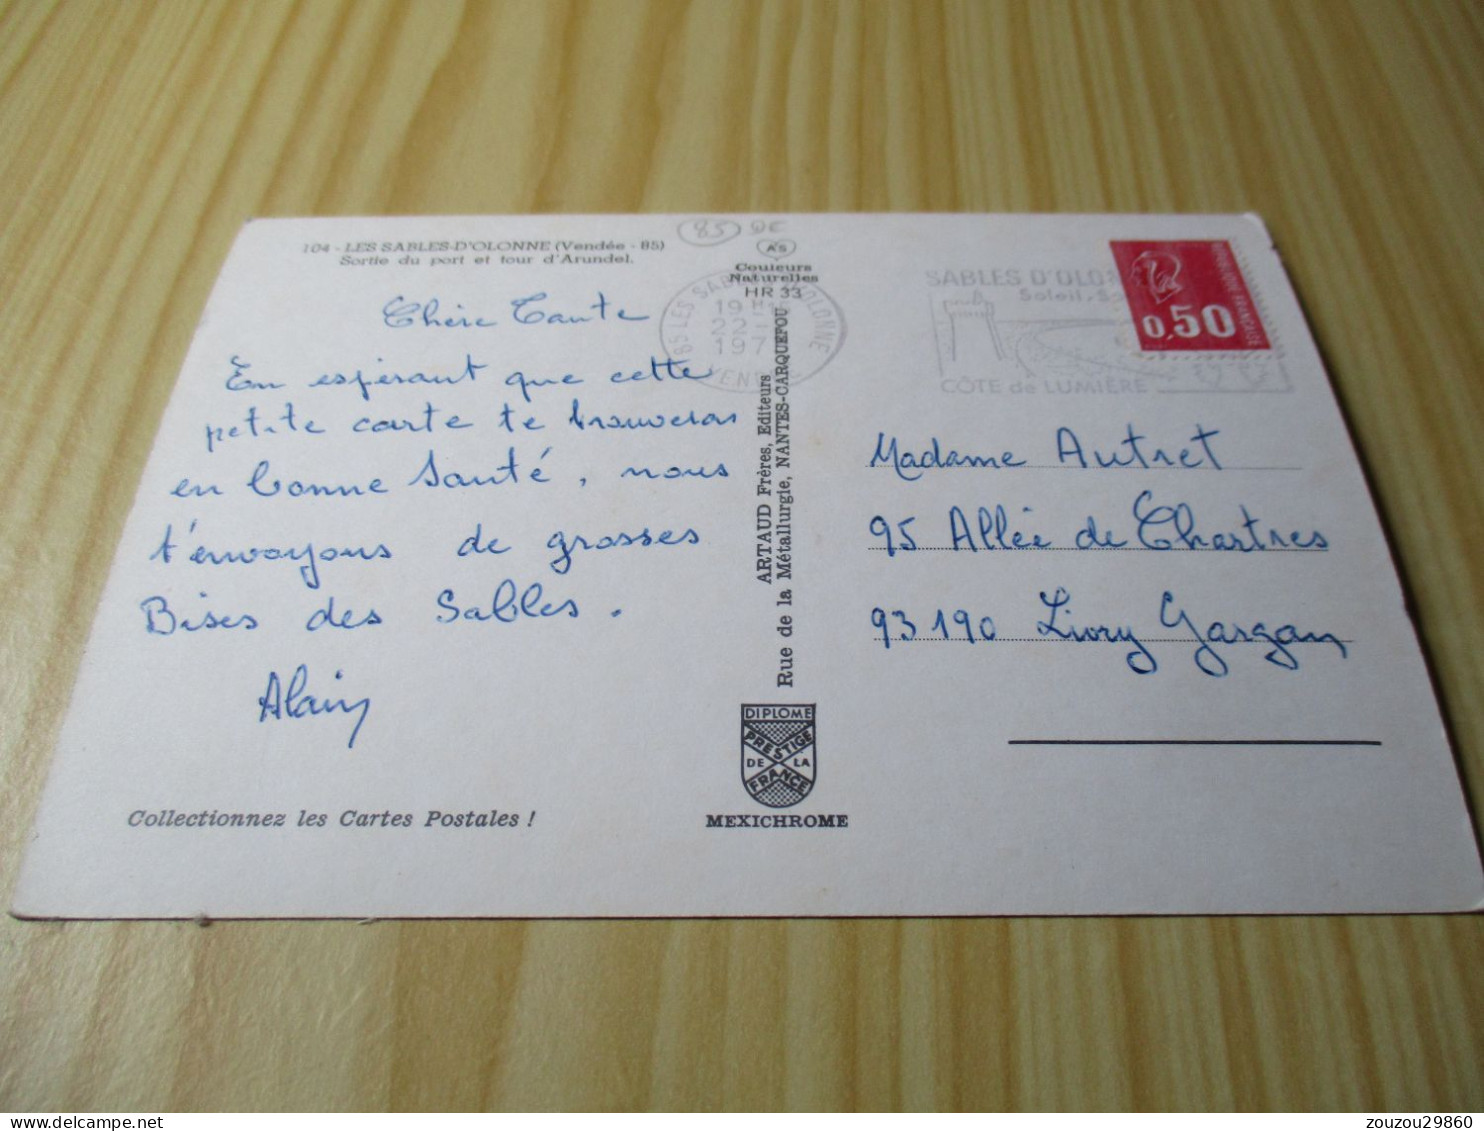 85 DE
104 - LES SABLES-D'OLONNE (Vendée - 85)
Sortie du port et tour d'Arundel.
Chère Tante
En espérant que cette
petite carte te trouveras
en bonne Santé, nous
t'envoyons de grosses
Bises des Sables.
Alain
Collectionnez les Cartes Postales !
AS
Couleurs
Naturelles
HR 33
ARTAUD Frères, Editeurs
Rue de la Métallurgie, NANTES-CARQUEFOU
DIPLOME
PRESTIGE
DE LA
FRANCE
MEXICHROME
85 LES SABLES D'OLONNE
19 H
22
197
VENDEE
SABLES D'OLON
Soleil
CÔTE de LUMIÈRE
0,50
REPUBLIQUE FRANCAISE
Madame Autret
95 Allée de Chartres
93190 Livry Gargan
zouzou29860